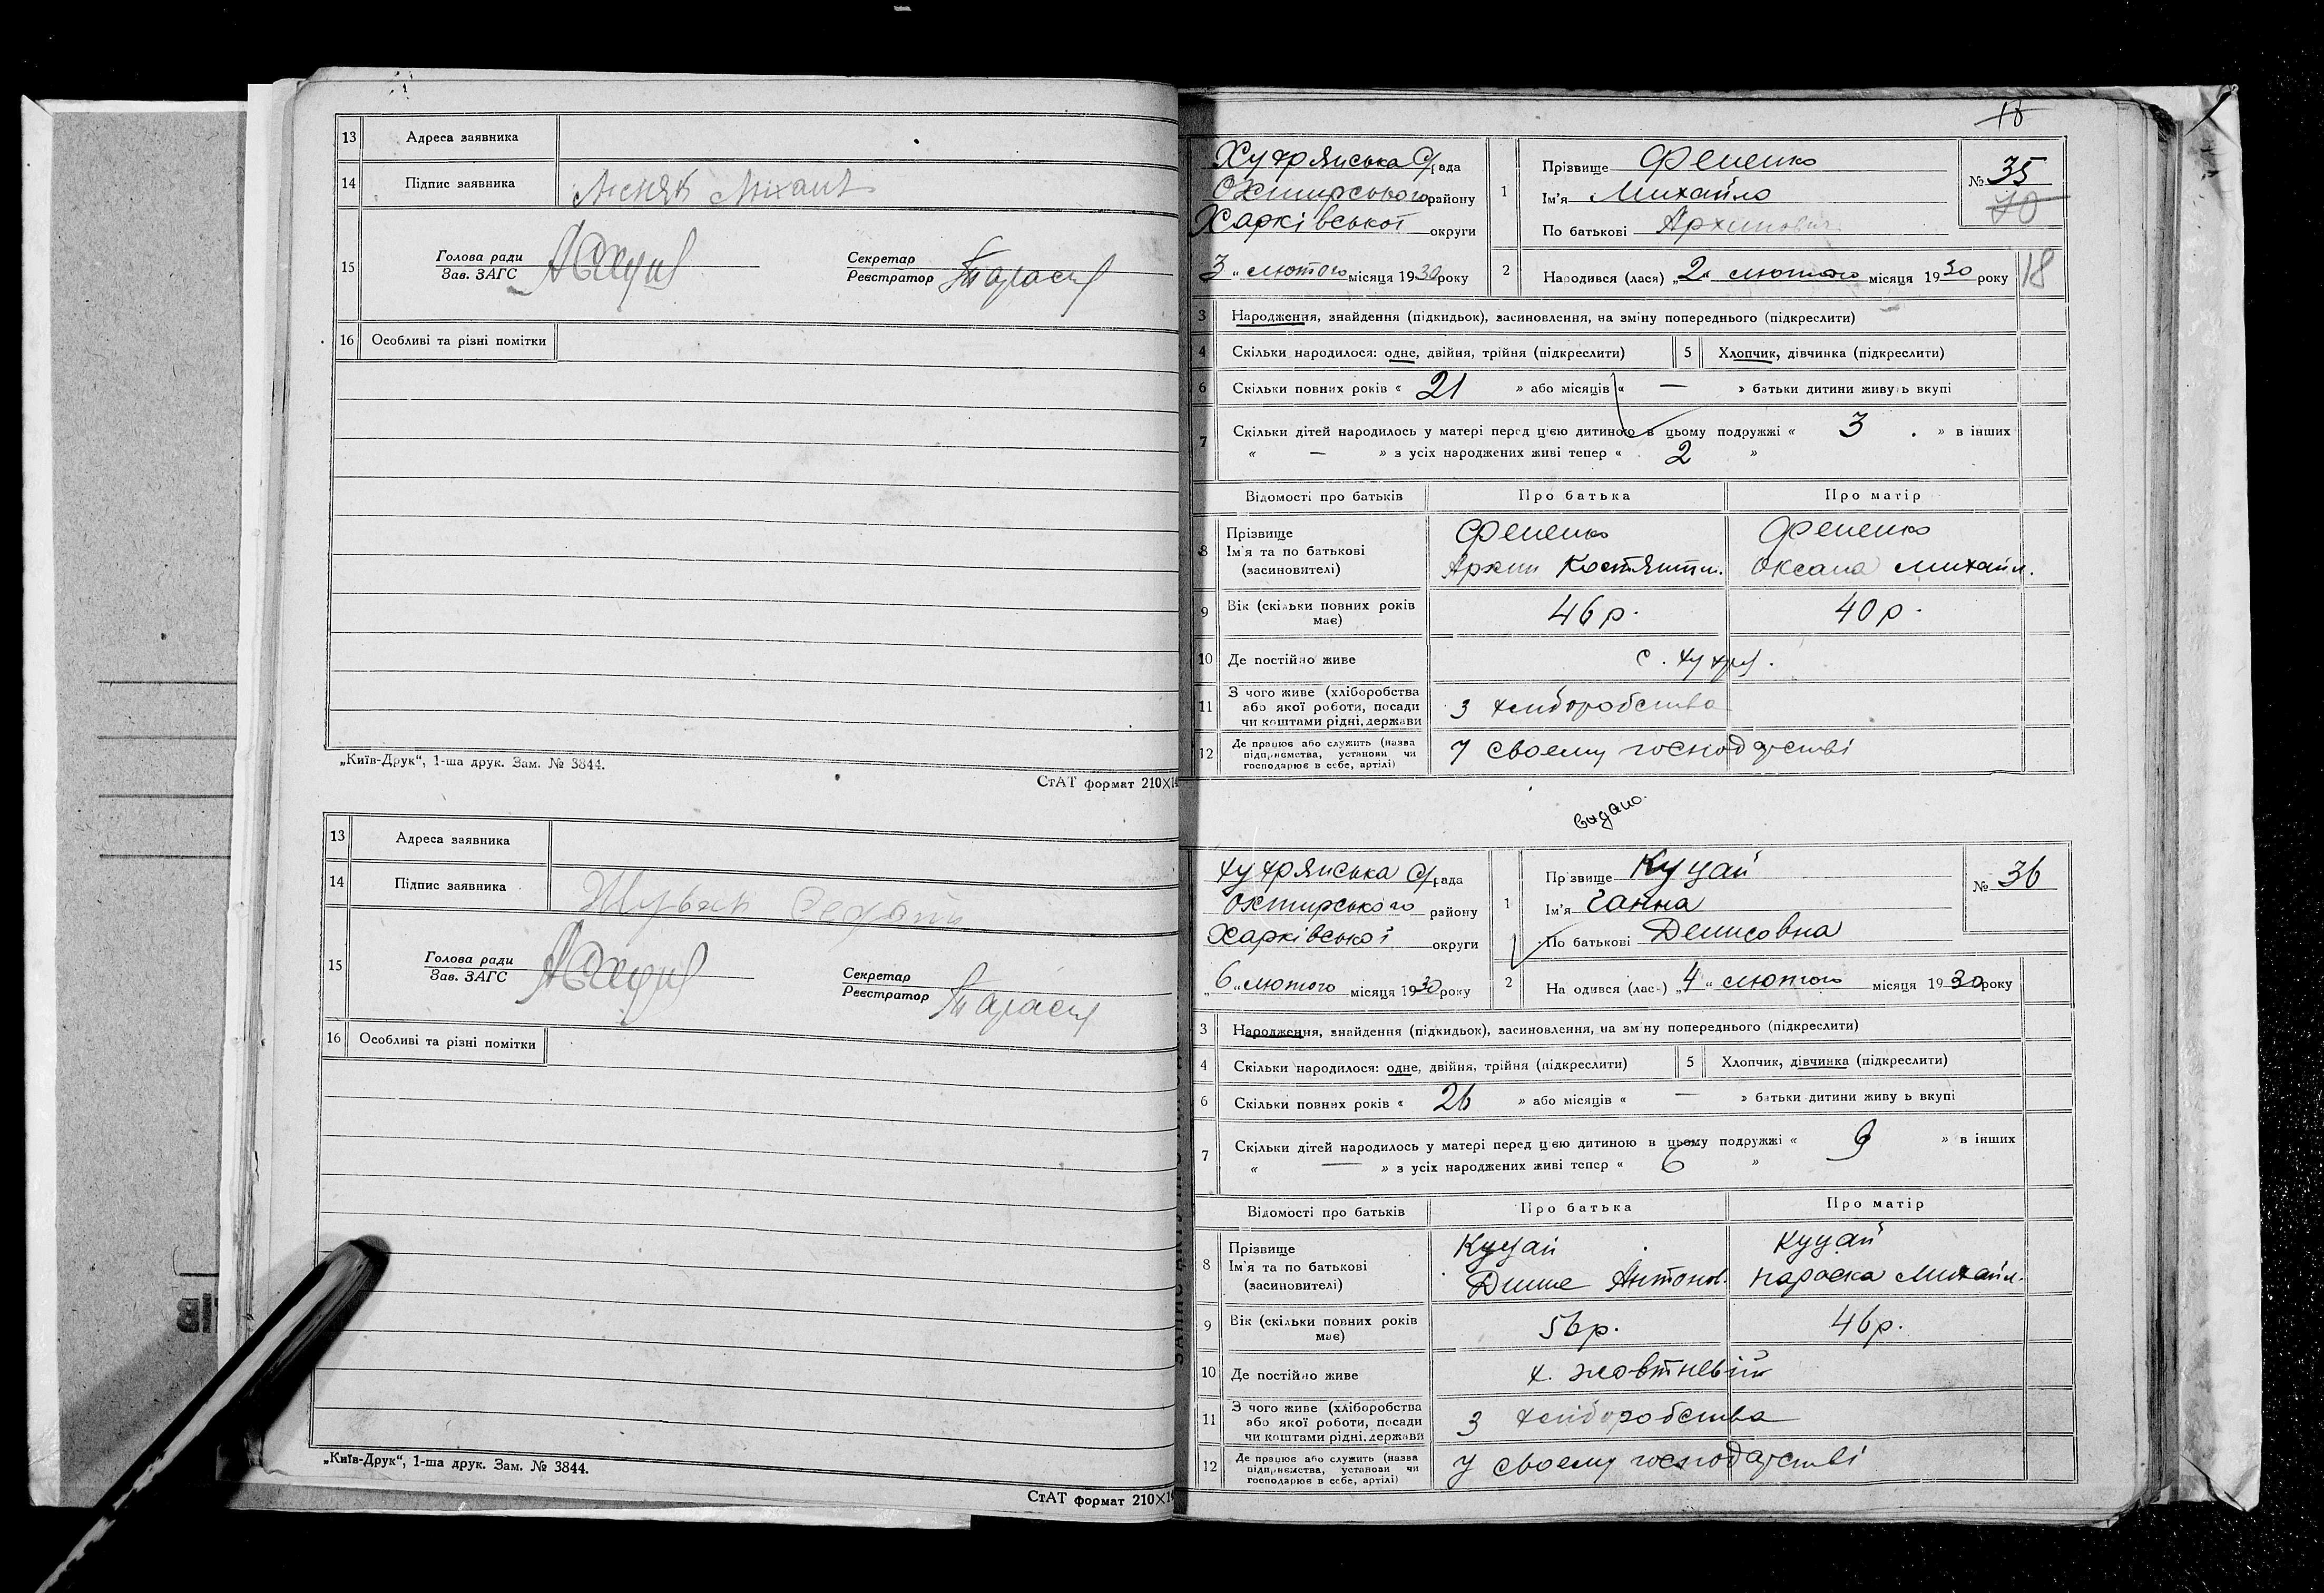 13 Адреса заявника
14 Підпис заявника
15 Голова ради Секретар
Зав. ЗАГС Реєстратор
16 Особливі та різні помітки
„Київ-Друк“, 1-ша друк. Зам. № 3844.
СтАТ формат 210×14
13 Адреса заявника
14 Підпис заявника
15 Голова ради Секретар
Зав. ЗАГС Реєстратор
16 Особливі та різні помітки
„Київ-Друк“, 1-ша друк. Зам. № 3844.
СтАТ формат 210×14
18
Хухрянська С/рада
Охтирського району
Харківської округи
3 „ лютого місяця 1930 року
1 Прізвище Фененко
Ім'я Михайло
По батькові Архипович
№ 35
70
2 Народився (лася) „2„ лютого місяця 1930 року 18
3 Народження, знайдення (підкидьок), засиновлення, на зміну попереднього (підкреслити)
4 Скільки народилося: одне, двійня, трійня (підкреслити) 5 Хлопчик, дівчинка (підкреслити)
6 Скільки повних років « 21 » або місяців « — » батьки дитини живуть вкупі
7 Скільки дітей народилось у матері перед цією дитиною в цьому подружжі « 3 » в інших
« — » з усіх народжених живі тепер « 2 »
Відомості про батьків Про батька Про матір
8 Прізвище Фененко Фененко
Ім'я та по батькові Архип Костянтин. Оксана Михайл.
(засиновителі)
9 Вік (скільки повних років має) 46 р. 40 р.
10 Де постійно живе с. Хухря.
11 З чого живе (хліборобства або якої роботи, посади чи коштами рідні, держави З хліборобства
12 Де працює або служить (назва підприємства, установи чи господарює в себе, артілі) У своему господарстві
видано.
Хухрянська С/рада
Охтирського району
Харківської округи
„6„ лютого місяця 1930 року
1 Прізвище Куцай
Ім'я Ганна
По батькові Денисовна
№ 36
2 Народився (лась) „4„ лютого місяця 1930 року
3 Народження, знайдення (підкидьок), засиновлення, на зміну попереднього (підкреслити)
4 Скільки народилося: одне, двійня, трійня (підкреслити) 5 Хлопчик, дівчинка (підкреслити)
6 Скільки повних років « 26 » або місяців « — » батьки дитини живуть вкупі
7 Скільки дітей народилось у матері перед цією дитиною в цьому подружжі « 9 » в інших
« — » з усіх народжених живі тепер « 6 »
Відомості про батьків Про батька Про матір
8 Прізвище Куцай Куцай
Ім'я та по батькові Денис Антонов. Параска Михайл.
(засиновителі)
9 Вік (скільки повних років має) 56 р. 46 р.
10 Де постійно живе х. Жовтневій
11 З чого живе (хліборобства або якої роботи, посади чи коштами рідні, держави З хліборобства
12 Де працює або служить (назва підприємства, установи чи господарює в себе, артілі) У своему господарстві